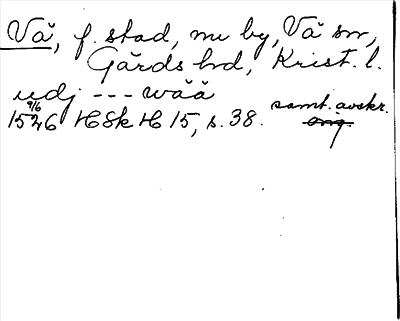 Vä, f. stad, nu by, Vä sn,
Gärds hd, Krist. l.
udj --- wää
9/6 samt. avskr.
1526 HSkH 15, s. 38. orig.